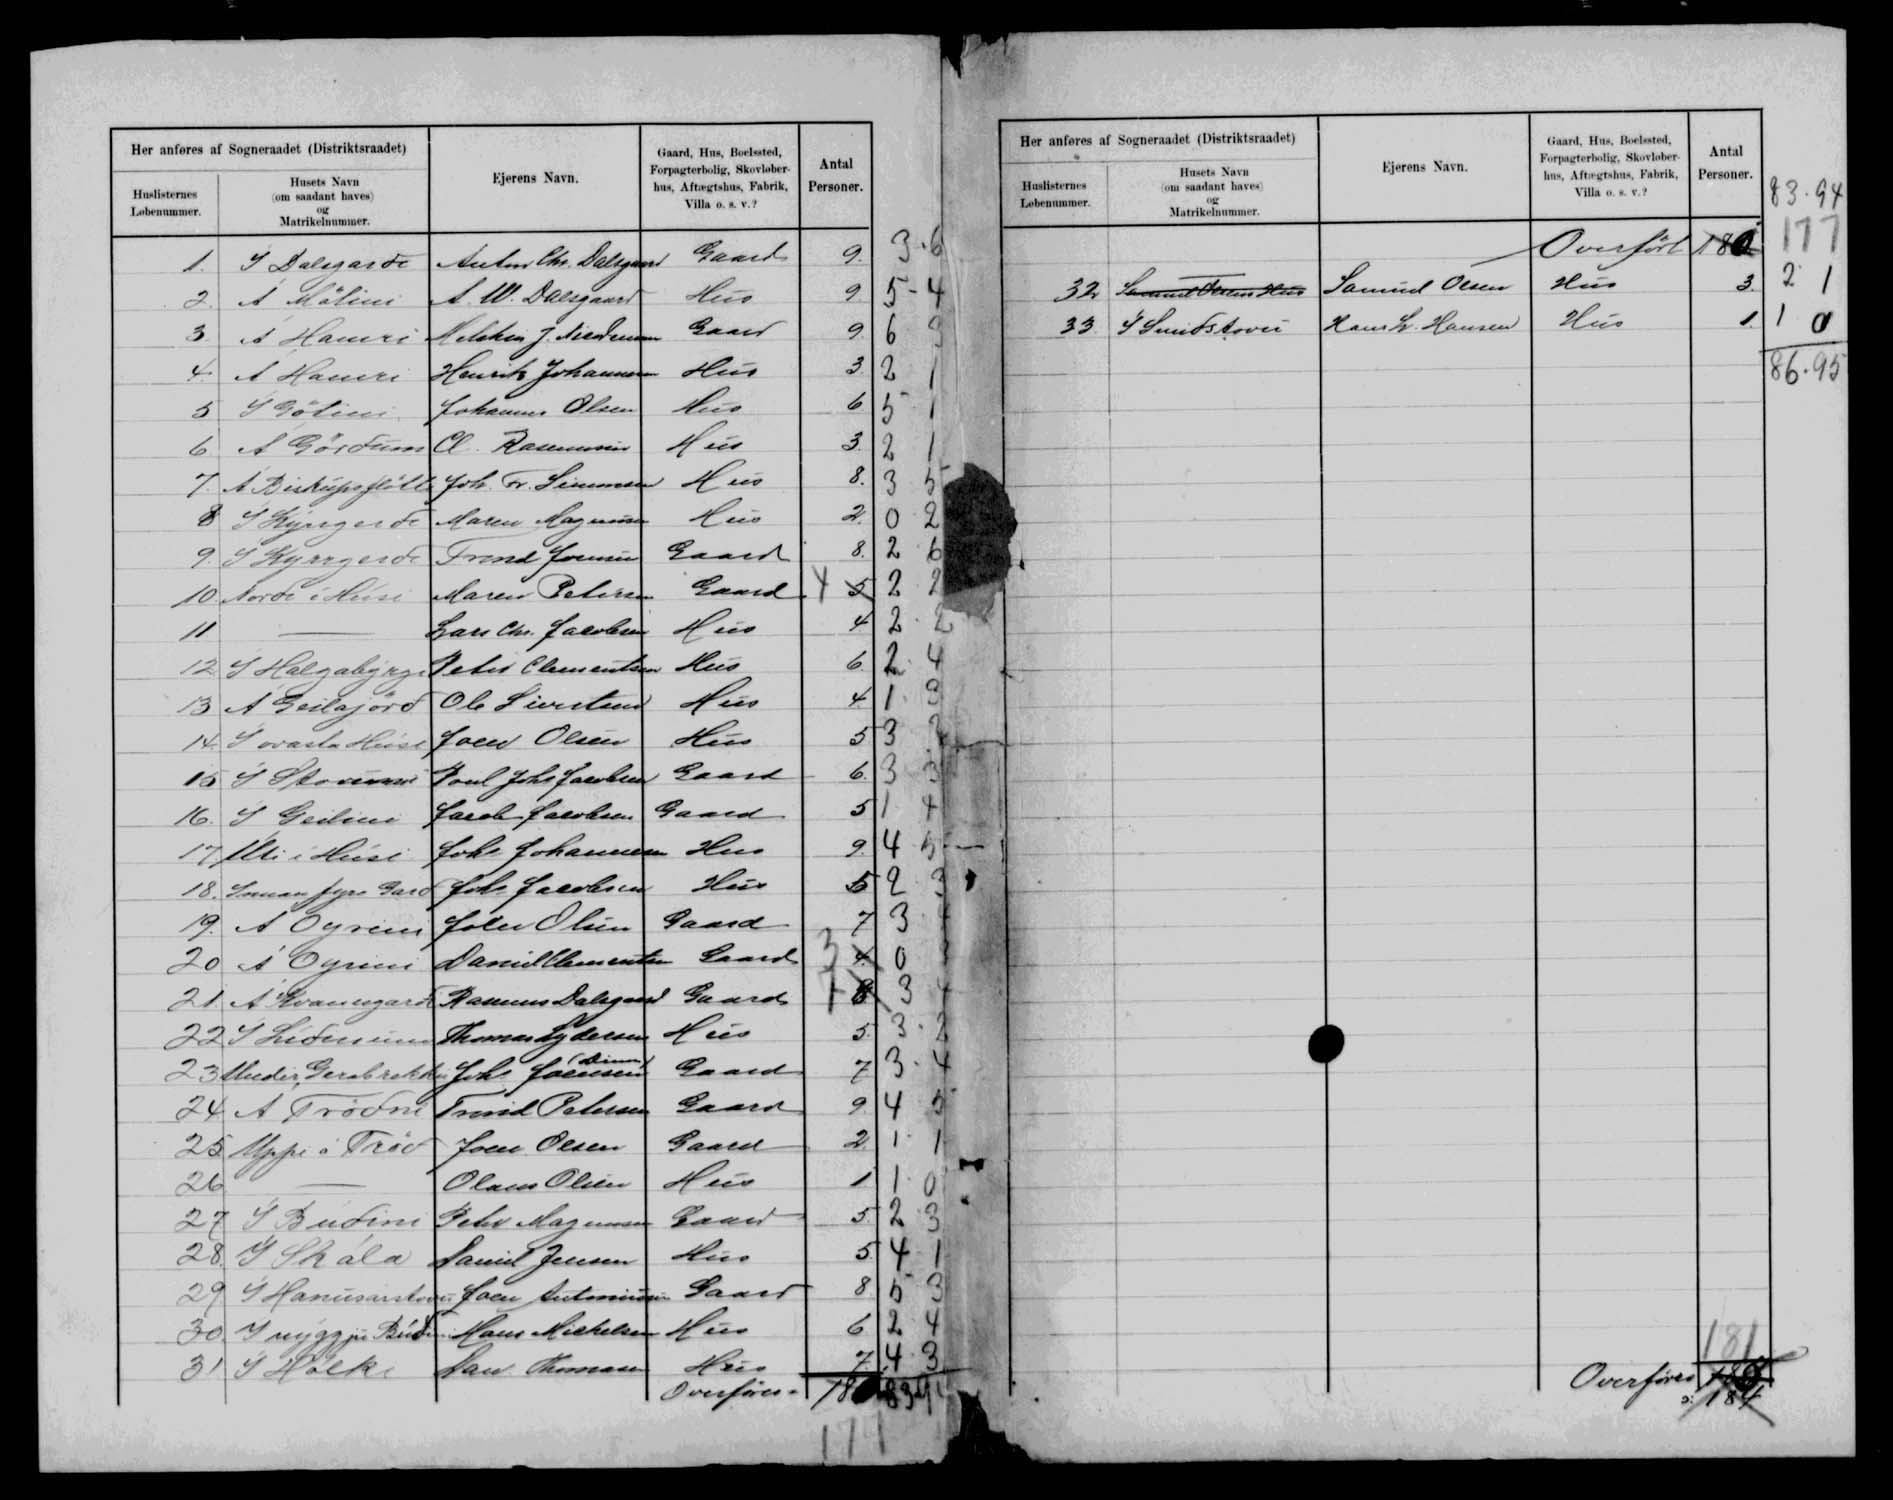 Her anføres af Sogneraadet (Distriktsraadet)
Huslisternes Løbenummer.
Husets Navn (om saadant haves) og Matrikelnummer.
Ejerens Navn.
Gaard, Hus, Boelssted, Forpagterbolig, Skovløberhus, Aftægtshus, Fabrik, Villa o. s. v.?
Antal Personer.
1. Í Dalsgarde Anton Chr. Dalsgaard Gaard 9. 3 · 6
2. Á Mølini A. W. Dalsgaard Hus 9 5 - 4
3. Á Hamri J. Gaard 9. 6 3
4. Á Hamri Henrik Johannesen Hus 3 2 1
5 Í Gøtini Johannes Olsen Hus 6 5 1
6. Á Gørdum Cl. Rasmussen Hus 3. 2 1
7. Á Joh. Fr. Simonsen Hus 8. 3 5
8 Í Maren Magnussen Hus 2. 0 2
9. Í Trond Joensen Gaard 8. 2 6
10. Nordi í Húsi Maren Petersen Gaard 4 5 2 2
11 — Lars Chr. Jacobsen Hus 4 2 · 2
12 Í Peter Clementsen Hus 6. 2 · 4
13 Á Geilajørd Ole Sivertsen Hus 4. 1 · 3
14. Í ovasta Húsi Joen Olsen Hus 5 3
15 Í Poul Johs Jacobsen Gaard 6. 3 3
16. Í Geilini Jacob Jacobsen Gaard 5 1 4
17 Uti í Húsi Johs Johannesen Hus 9. 4 · 5
18. Innan fyri Gard Johs Jacobsen Hus 5 2 3
19. Á Oyrini Joen Olsen Gaard 7 3
20 Á Oyrini Daniel Clementsen Gaard 3 4. 0
21. Á Rasmus Dalsgaard Gaard 7 8 3
22 Í Thomas Lydersen Hus 5. 3 · 2
23 Undir Johs Joensen Gaard 7 3 · 4
24 Á Trøðni Trond Petersen Gaard 9. 4 5
25 Uppi á Trøð Joen Olsen Gaard 2. 1 · 1
26 — Olaus Olsen Hus 1 1 · 0
27 Í Búðini Peter Magnussen Gaard 5 2 · 3
28. Í Skála Daniel Jensen Hus 5 4 · 1
29 Í Hanusarstovu Joen Gaard 8. 5 · 3
30 Í nýggju Hans Michelsen Hus 6 2 4
31 Í Hólki Dan. Thomasen Hus 7. 4 · 3
Overføres =
177
Her anføres af Sogneraadet (Distriktsraadet)
Huslisternes Løbenummer.
Husets Navn (om saadant haves) og Matrikelnummer.
Ejerens Navn.
Gaard, Hus, Boelssted, Forpagterbolig, Skovløberhus, Aftægtshus, Fabrik, Villa o. s. v.?
Antal Personer.
83 · 94
Overført 177
32 Samuel Olsens Hus Samuel Olsen Hus 3. 2 1
33 Í Smidstovu Hans L. Hansen Hus 1. 1 0
86 · 95
181
Overføres
ɔ: 184